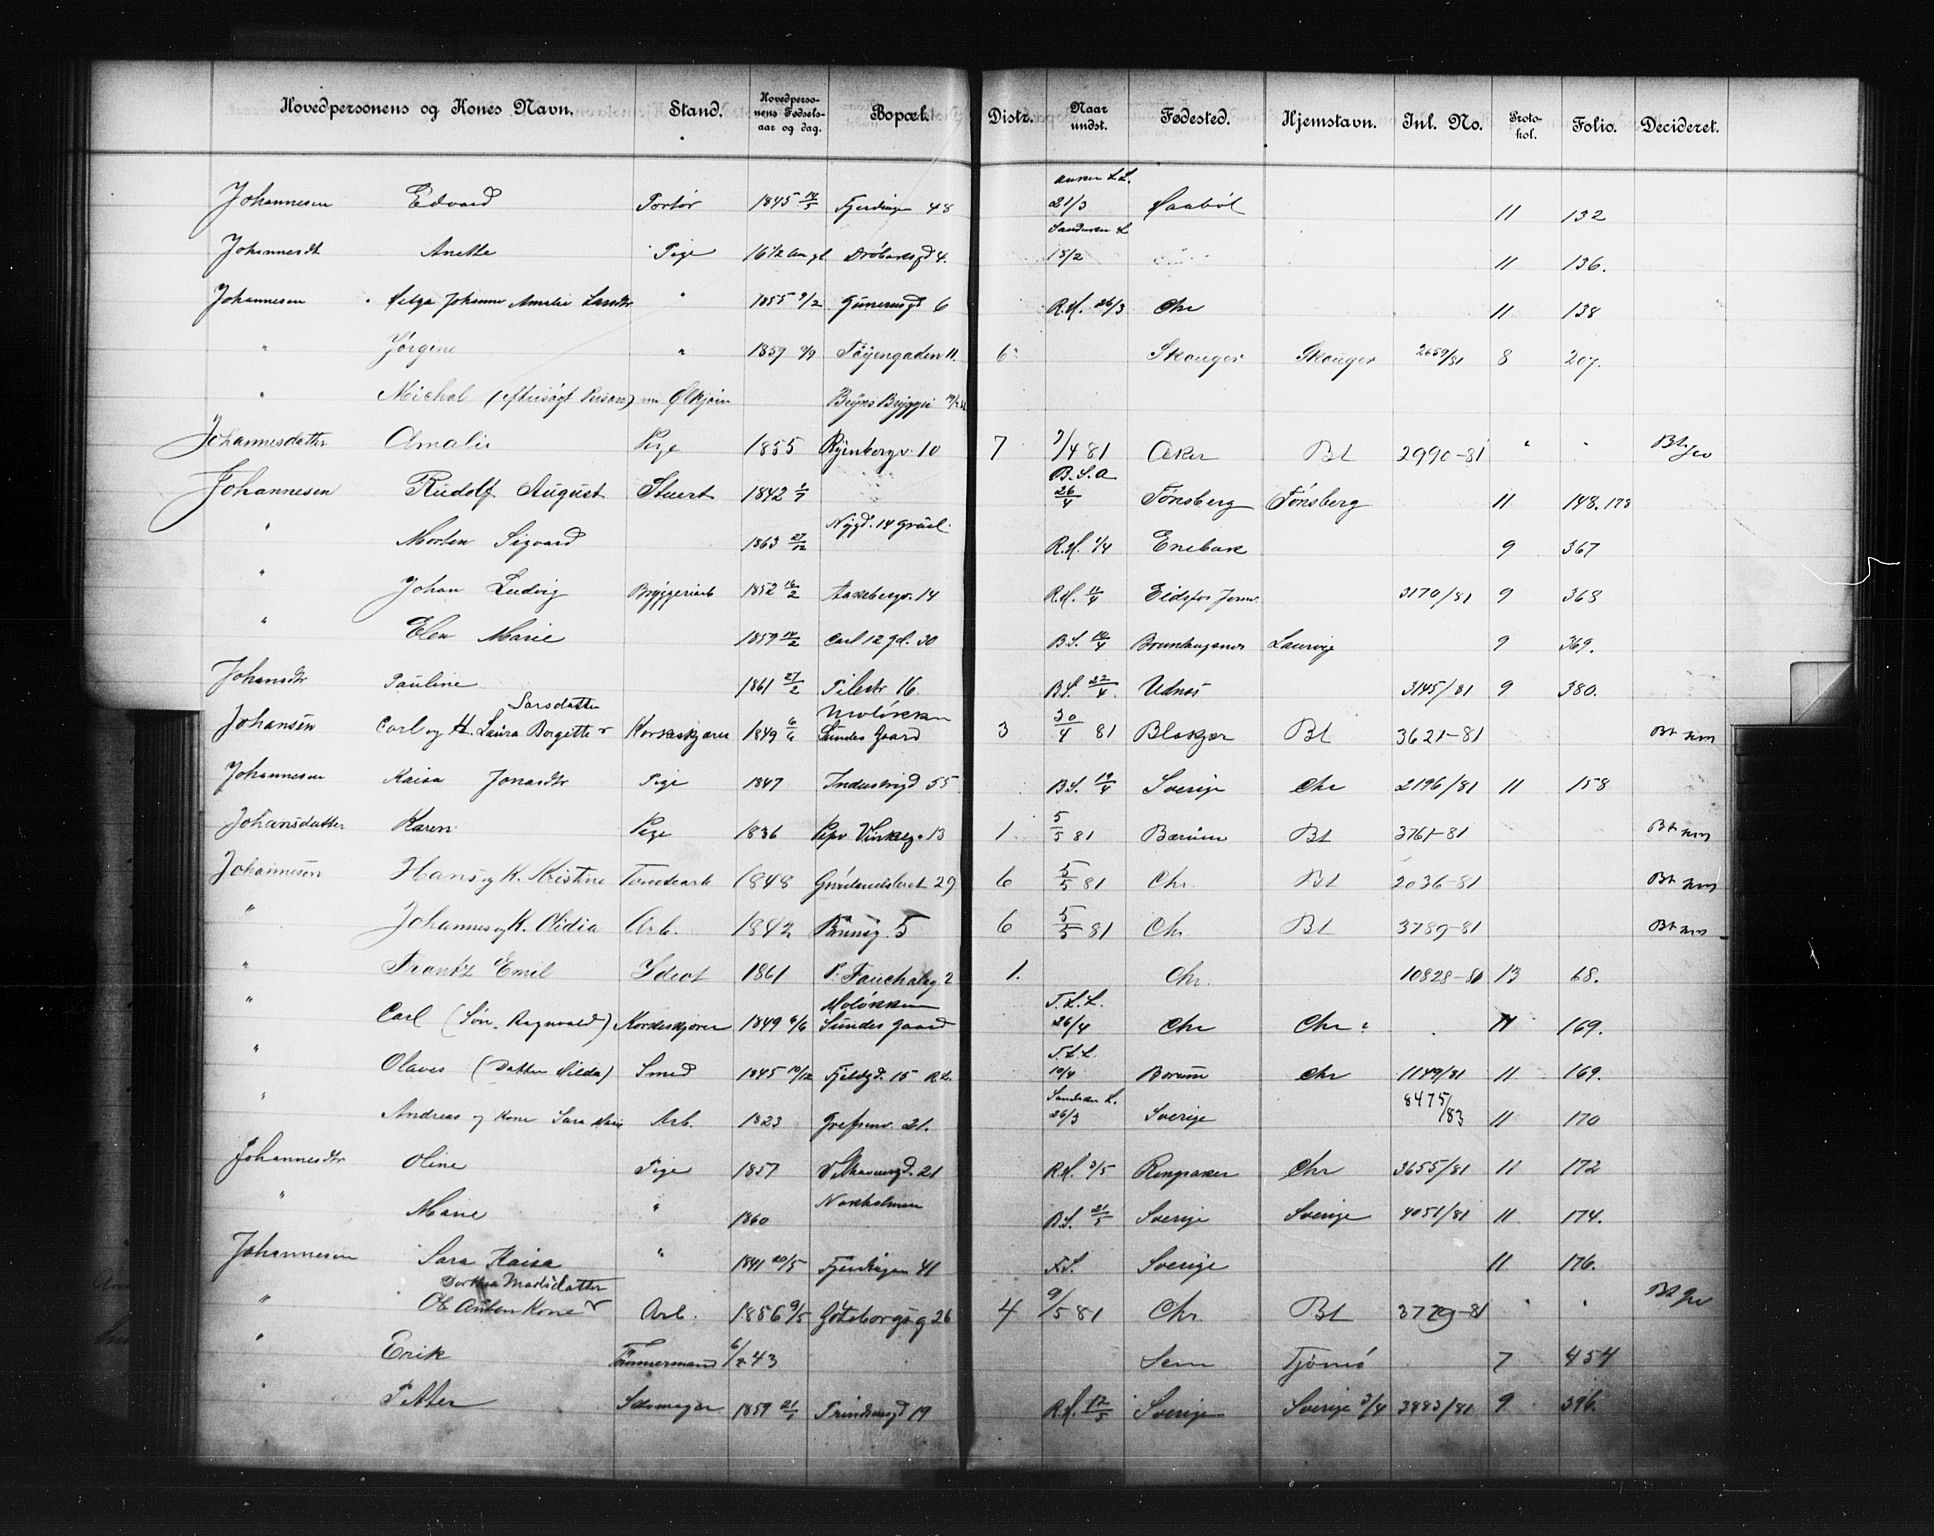 Hovedpersonens og Kones Navn. Stand. Hovedperso-nens Fødsels-aar og dag. Bopæl. Distr. Naar undst. Fødested. Hjemstavn. Inl. No. Proto-kol. Folio. Decideret.
Johannesen Edvard 1845 14/5 Fjerdingen 48 21/3 11 132
Johannesdt Anette Pige 16 1/2 Drøbaksgd 4. 15/2 11 136.
Johannesen Helga Johanne Amalie " 1855 9/2 6 R.H. 26/3 Chr 11 138
" Jørgine " 1859 Tøyengaden 11. 6 Skouger Skouger 2659/81 8 207.
" Michal (eftersøgt Person) Bryns Bryggeri
Johannesdatter Amalie Pige 1855 Ryenbergv. 10 7 9/4 81 Aker Bt 2990-81 " " Bt
Johannesen Rudolf August Stuert 1842 1/7 B.S.A 26/4 Tønsberg Tønsberg 11 148. 178
" Morten Sigvard 1863 27/12 Nygd. 14 R.H. 1/4 Enebak 9 367
" Johan Ludvig Bryggeriarb 1852 16/2 Aakebergv. 14 R.H. 11/4 Eidsfos 3170/81 9 368
" Elen Marie 1859 14/2 Carl 12 gd. 30 B.S. 14/4 Laurvig 9 369.
Johansdtr Pauline 1861 27/2 Pilestr 16 B.S. 22/4 Udnæs 3145/81 9 380.
Larsdatter
Johansen Carl og H. Laura Borgitte Korkeskjærer 1849 6/6 Moløkken Sundes Gaard 3 30/4 81 Blakjer Bt 3621-81 Bt
Johannesen Kaisa Jonasdtr Pige 1847 Industrigd 55 B.S. 19/4 Sverige Chr 2196/81 11 158
Johansdatter Karen Pige 1836 13 1. 5/5 81 Bærum Bt 3761-81 Bt
Johannesen Hans og K. Kristine 1848 Grønlandsleret 29 6 5/5 81 Chr. Bt 2036-81 Bt
" Johannes og K. Olidia Arb. 1842 5 6 5/5 81 Chr. Bt 3789-81 Bt
" Frantz Emil Ideot 1861 P. Fauchaldsg 2 1. Chr. 10828-80 13 68.
" Carl (Søn, Ragnvald) Korkeskjærer 1849 6/6 Moløkken Sundes gaard T.L.L. 26/4 Chr Chr: 11 169.
" Olaves (Datter Hilda) Smed 1845 10/12 Fjeldgd. 15 T.L.L. 10/4 Bærum Chr 1149/81 11 169.
" Andreas og Kone Sara Arb. 1823 Grefsenv. 21. 26/3 Sverige 8475/83 11 170
Johannesdtr Oline Pige 1857 21 R.H. 3/5 Ringsaker Chr 3655/81 11 172
" Marie " 1860 Nakholmen B.S. 21/5 Sverige Sverige 4051/81 11 174.
Johannesen Sara Kaisa " 1841 20/5 Fjerdingen 41 Sverige 11 176.
Dorthea Madsdatter
" Ole Anton Kone Arb. 1856 9/5 Gøteborgsg 26 4 9/5 81 Chr. Bt 3729-81 " " Bt
" Erik Tømmermand 43 Sem Tjømø 7 454
" Petter Skomager 1859 21/1 Trondhemsgd 19 R.H. 12/5 Sverige Sverige 3/4 3483/81 9 396.